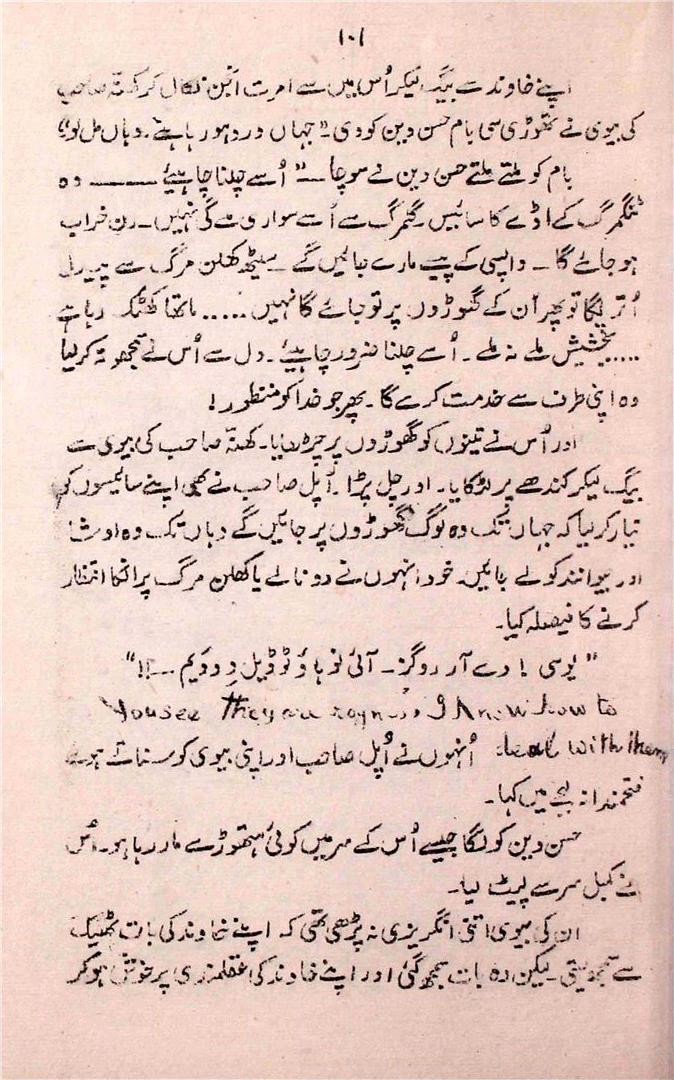 ۱۰۱
اپنے خاوند سے بیگ لیکر اُس میں سے امرت آنجن نکال کر کھنّہ صاحب
کی بیوی نے تھوڑی سی بام حسن دین کو دی۔ "جہاں درد ہو رہا ہے۔ وہاں مل لو"
بام کو ملتے ملتے حسن دین نے سوچا۔۔" اُسے چلنا چاہیئے ــــــ وہ
ٹنگمرگ کے اڈے کا سائیس۔ گلمرگ سے اُسے سواری ملے گی نہیں۔ دن خراب
ہو جائے گا۔ واپسی کے پیسے مارے جائیں گے۔ سیٹھ کھلن مرگ سے پیدل
اُتر لیگا تو پھر اُن کے گھوڑوں پر تو جائے گا نہیں ..... ماتھا کھٹک رہا ہے
.... بخشیش ملے نہ ملے۔ اُسے چلنا ضرور چاہیئے۔ دل سے اُس نے سمجھوتہ کر لیا
وہ اپنی طرف سے خدمت کرے گا۔ پھر جو خدا کو منظور!
اور اُس نے تینوں کو گھوڑوں پر چڑھایا۔ کھنّہ صاحب کی بیوی سے
بیگ لیکر کندھے پر لٹکایا۔ اور چل پڑا۔ اُپل صاحب نے بھی اپنے سائیسوں کو
تیار کر لیا کہ جہاں تک وہ لوگ گھوڑوں پر جائیں گے وہاں تک وہ اوشا
اور بیوا نند کو لے جائیں۔ خود انہوں نے دو نالے یا کھلن مرگ پر انکا انتظار
کرنے کا فیصلہ کیا۔
"یُو سی! دے آر روگز۔ آئی نو ہاؤ ٹو ڈیل وِد دَیم ۔۔!!"
You see They are rogues I know how to
deal with them اُنہوں نے اُپل صاحب اور اپنی بیوی کو سناتے ہوئے
فتحمندانہ لہجے میں کہا۔
حسن دین کو لگا جیسے اُس کے سر میں کوئی ہتھوڑے سے مار رہا ہو۔ اُس
نے کمبل سر سے لپیٹ لیا۔
ان کی بیوی اتنی انگریزی نہ پڑھی تھی کہ اپنے خاوند کی بات ٹھیک
سے سمجھ لیتی۔ لیکن وہ بات سمجھ گئی اور اپنے خاوند کی عقلمندی پر خوش ہو کر